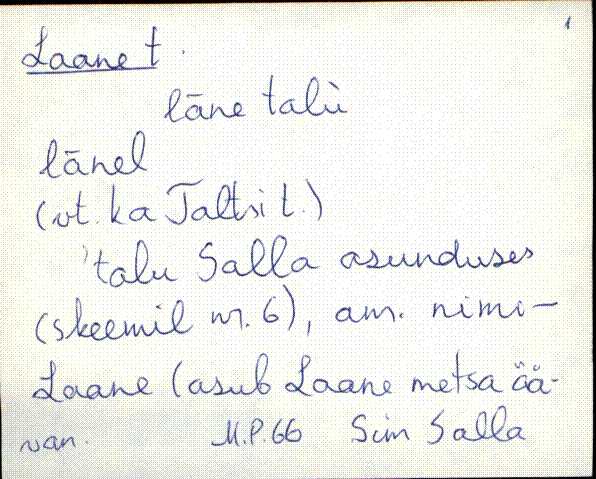 1
Laane t.
lāne talù
lānel
(vt. ka Taltsi t.)
'talu Salla asunduses
(skeemil nr. 6), am. nimi-
Laane (asub Laane metsa ää-
van. M.P. 66 Sim Salla